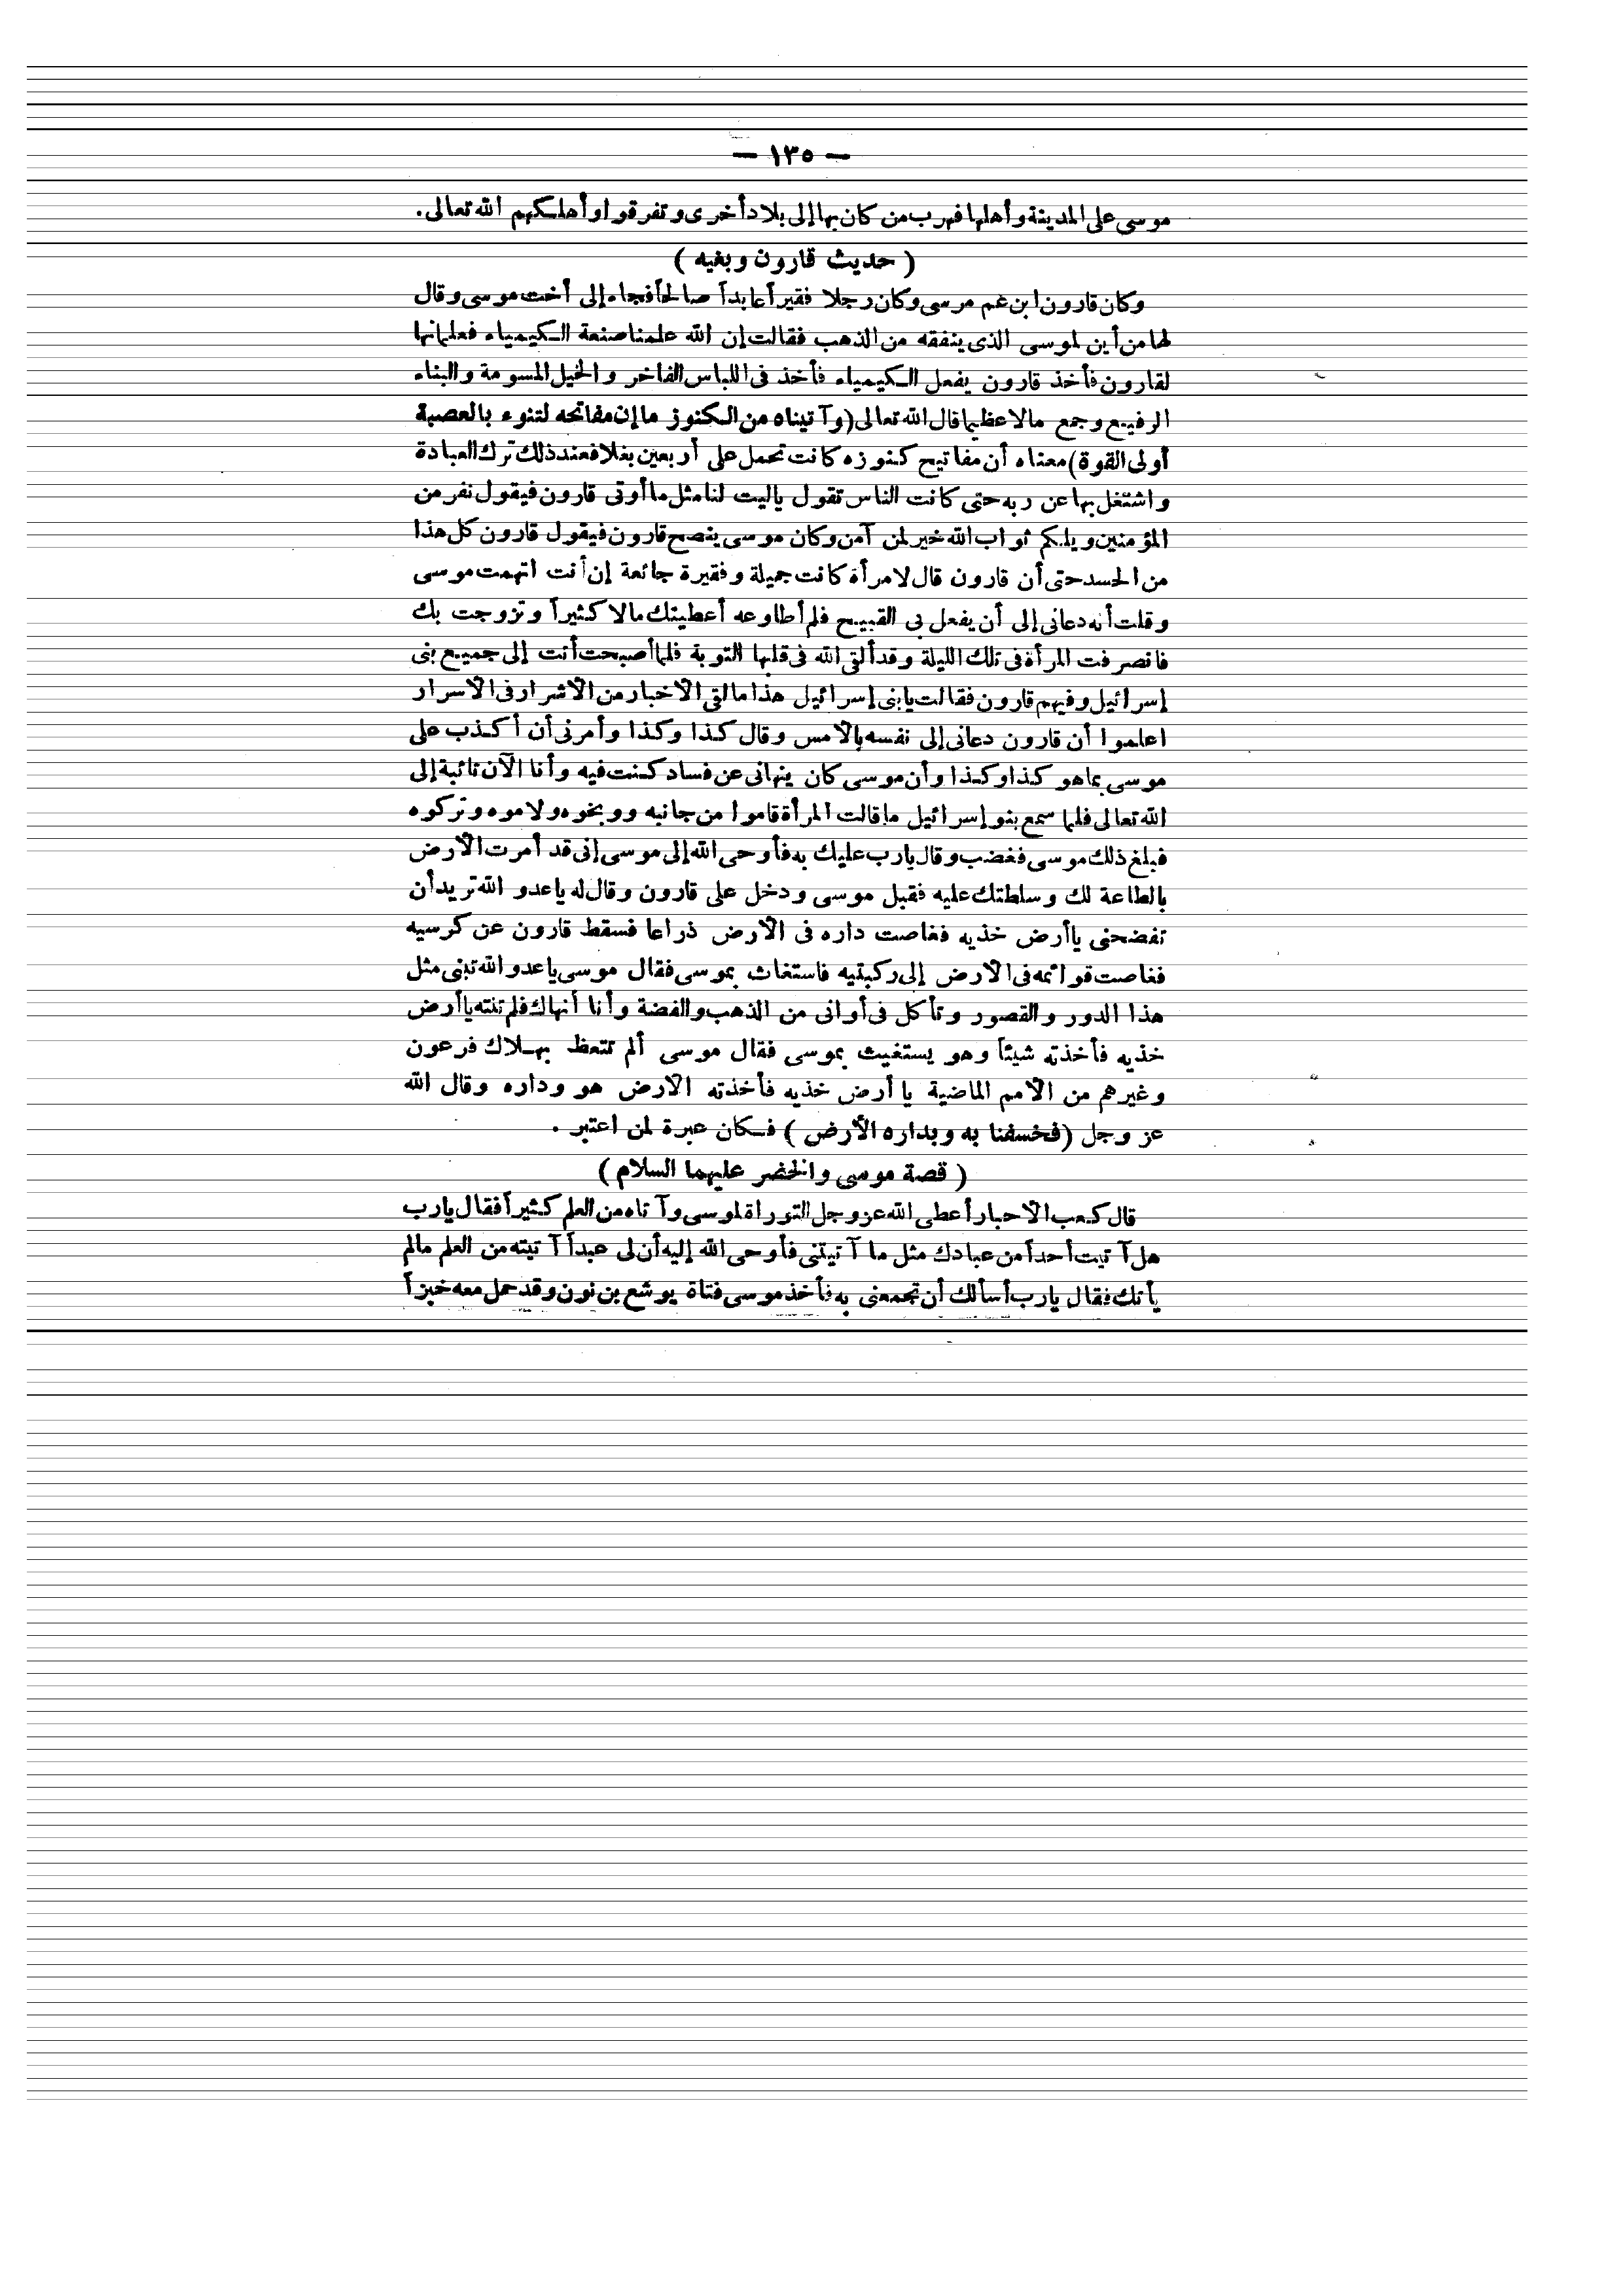 — ١٣٥ —
موسى على المدينة وأهلها فهرب من كان بها إلى بلاد أخرى وتفرقوا وأهلكهم الله تعالى.
( حديث قارون وبغيه )
وكان قارون ابن عم موسى وكان رجلا فقيراً عابداً صالحاً فجاء إلى أخت موسى وقال
لها من أين لموسى الذى ينفقه من الذهب فقالت إن الله علمنا صنعة الكيمياء فعلمانها
لقارون فأخذ قارون يفعل الكيمياء فأخذ فى اللباس الفاخر والخيل المسومة والبناء
الرفيع وجمع مالا عظيما قال الله تعالى (وآتيناه من الكنوز ما إن مفاتحه لتنوء بالعصبة
أولى القوة) معناه أن مفاتيح كنوزه كانت تحمل على أربعين بغلا فعند ذلك ترك العبادة
واشتغل بها عن ربه حتى كانت الناس تقول ياليت لنا مثل ما أوتى قارون فيقول نفر من
المؤمنين ويلكم ثواب الله خير لمن آمن وكان موسى ينصح قارون فيقول قارون كل هذا
من الحسد حتى أن قارون قال لامرأة كانت جميلة وفقيرة جائعة إن أنت اتهمت موسى
وقلت أنه دعانى إلى أن يفعل بى القبيح فلم أطاوعه أعطيتك مالا كثيراً وتزوجت بك
فانصرفت المرأة فى تلك الليلة وقد ألقى الله فى قلبها التوبة فلما أصبحت أتت إلى جميع بنى
إسرائيل وفيهم قارون فقالت يابنى إسرائيل هذا ما لقى الاخبار من الاشرار فى الاسرار
اعلموا أن قارون دعانى إلى نفسه بالامس وقال كذا وكذا وأمرنى أن أكذب على
موسى بما هو كذا وكذا وأن موسى كان ينهانى عن فساد كنت فيه وأنا الآن تائبة إلى
الله تعالى فلما سمع بنو إسرائيل ما قالت المرأة قاموا من جانبه ووبخوه ولاموه وتركوه
فبلغ ذلك موسى فغضب وقال يارب عليك به فأوحى الله إلى موسى إنى قد أمرت الأرض
بالطاعة لك وسلطتك عليه فقبل موسى ودخل على قارون وقال له ياعدو الله تريد أن
تفضحنى ياأرض خذيه فغاصت داره فى الأرض ذراعا فسقط قارون عن كرسيه
فغاصت قوائمه فى الارض إلى ركبتيه فاستغاث بموسى فقال موسى ياعدو الله تبنى مثل
هذا الدور والقصور وتأكل فى أوانى من الذهب والفضة وأنا أنهاك فلم تنته ياأرض
خذيه فأخذته شيئاً وهو يستغيث بموسى فقال موسى ألم تتعظ بهلاك فرعون
وغيرهم من الأمم الماضية يا أرض خذيه فأخذته الارض هو وداره وقال الله
عز وجل (فخسفنا به وبداره الأرض ) فكان عبرة لمن اعتبر .
( قصة موسى والخضر عليهما السلام )
قال كعب الاحبار أعطى الله عز وجل التوراة لموسى وآتاه من العلم كثيراً فقال يارب
هل آتيت أحداً من عبادك مثل ما آتيتنى فأوحى الله إليه أن لى عبداً آتيته من العلم مالم
يأتك فقال يارب أسألك أن تجمعنى به فأخذ موسى فتاة يوشع بن نون وقد حمل معه خبزاً